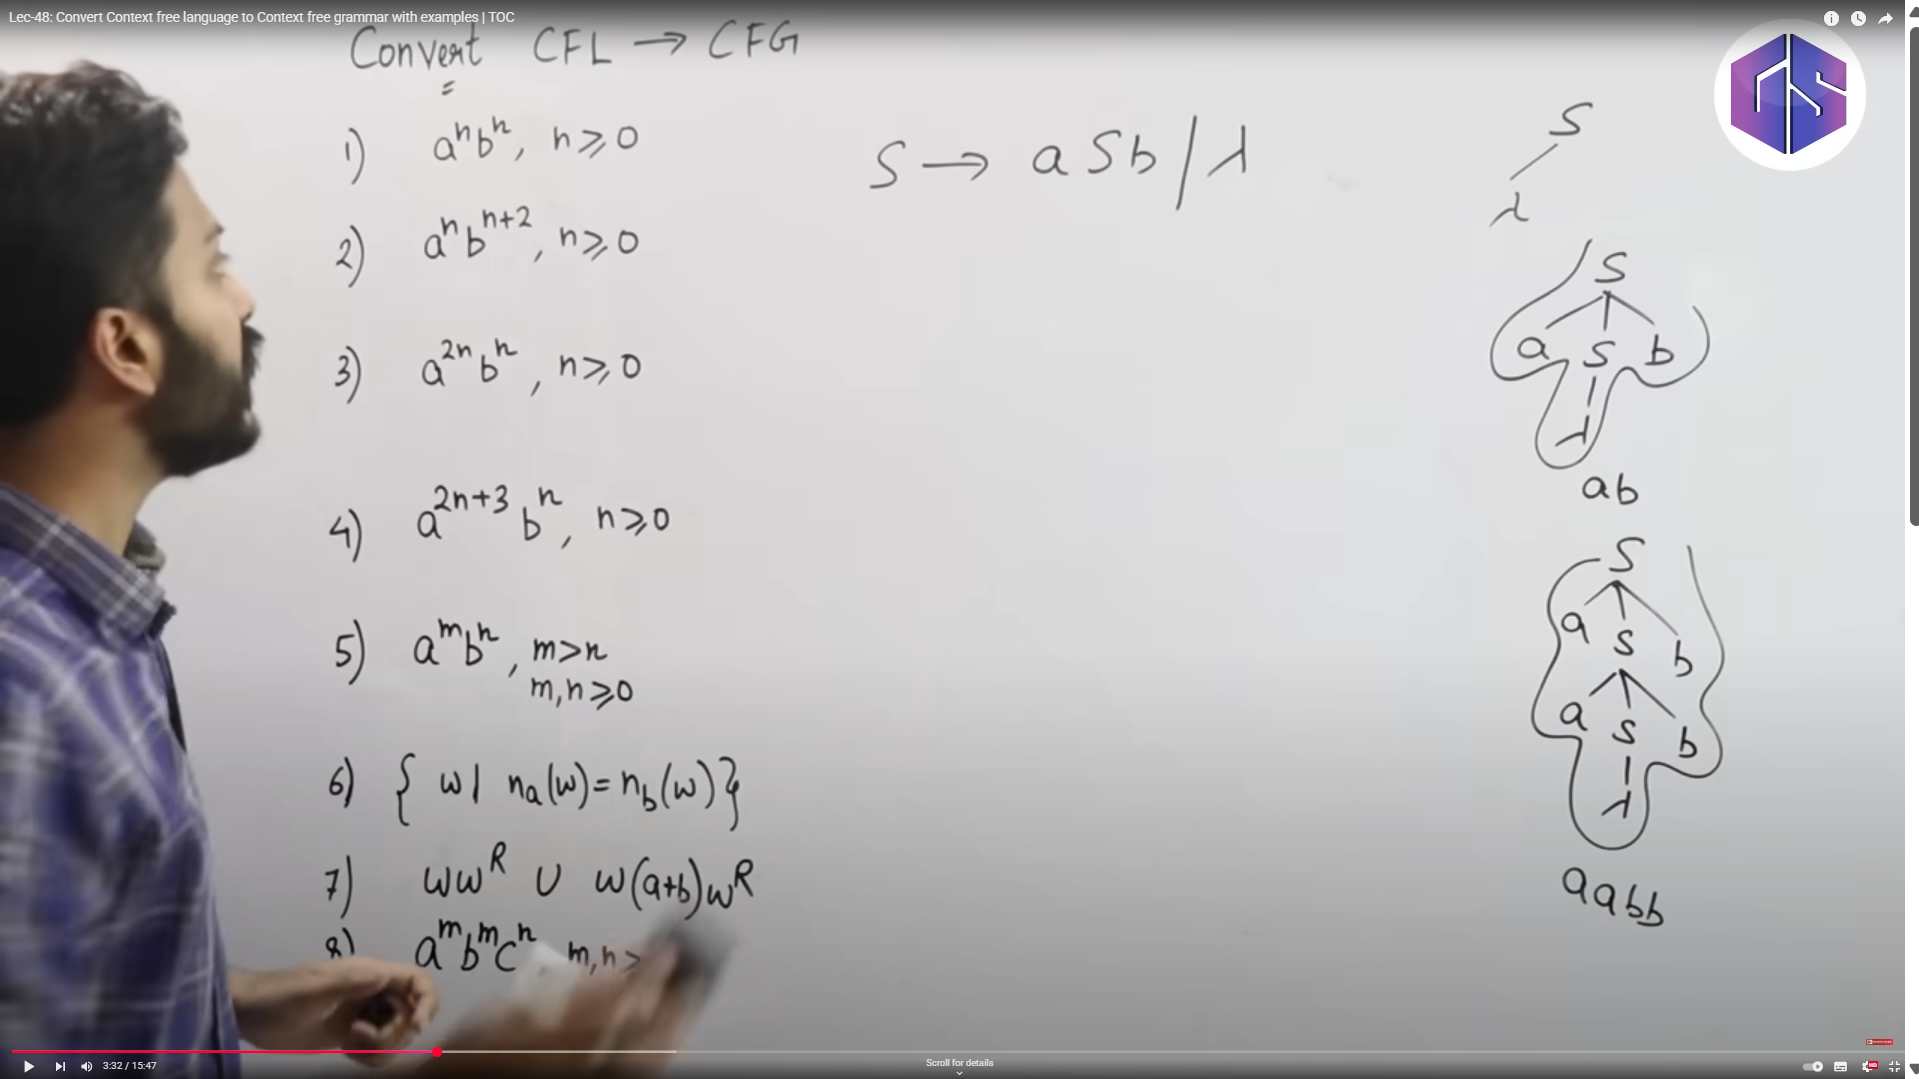 Lec-48: Convert Context free language to Context free grammar with examples | TOC
Convert CFL → CFG
=
1) aⁿbⁿ, n≥0
S → aSb / λ
2) aⁿbⁿ⁺², n≥0
3) a²ⁿbⁿ, n≥0
4) a²ⁿ⁺³bⁿ, n≥0
5) aᵐbⁿ, m>n
m,n≥0
6) { w | nₐ(w) = n_b(w) }
7) wwᴿ ∪ w(a+b)wᴿ
8) aᵐbᵐcⁿ, m,n≥
S
λ
S
a S b
λ
ab
S
a S b
a S b
λ
aabb
3:32 / 15:47
Scroll for details